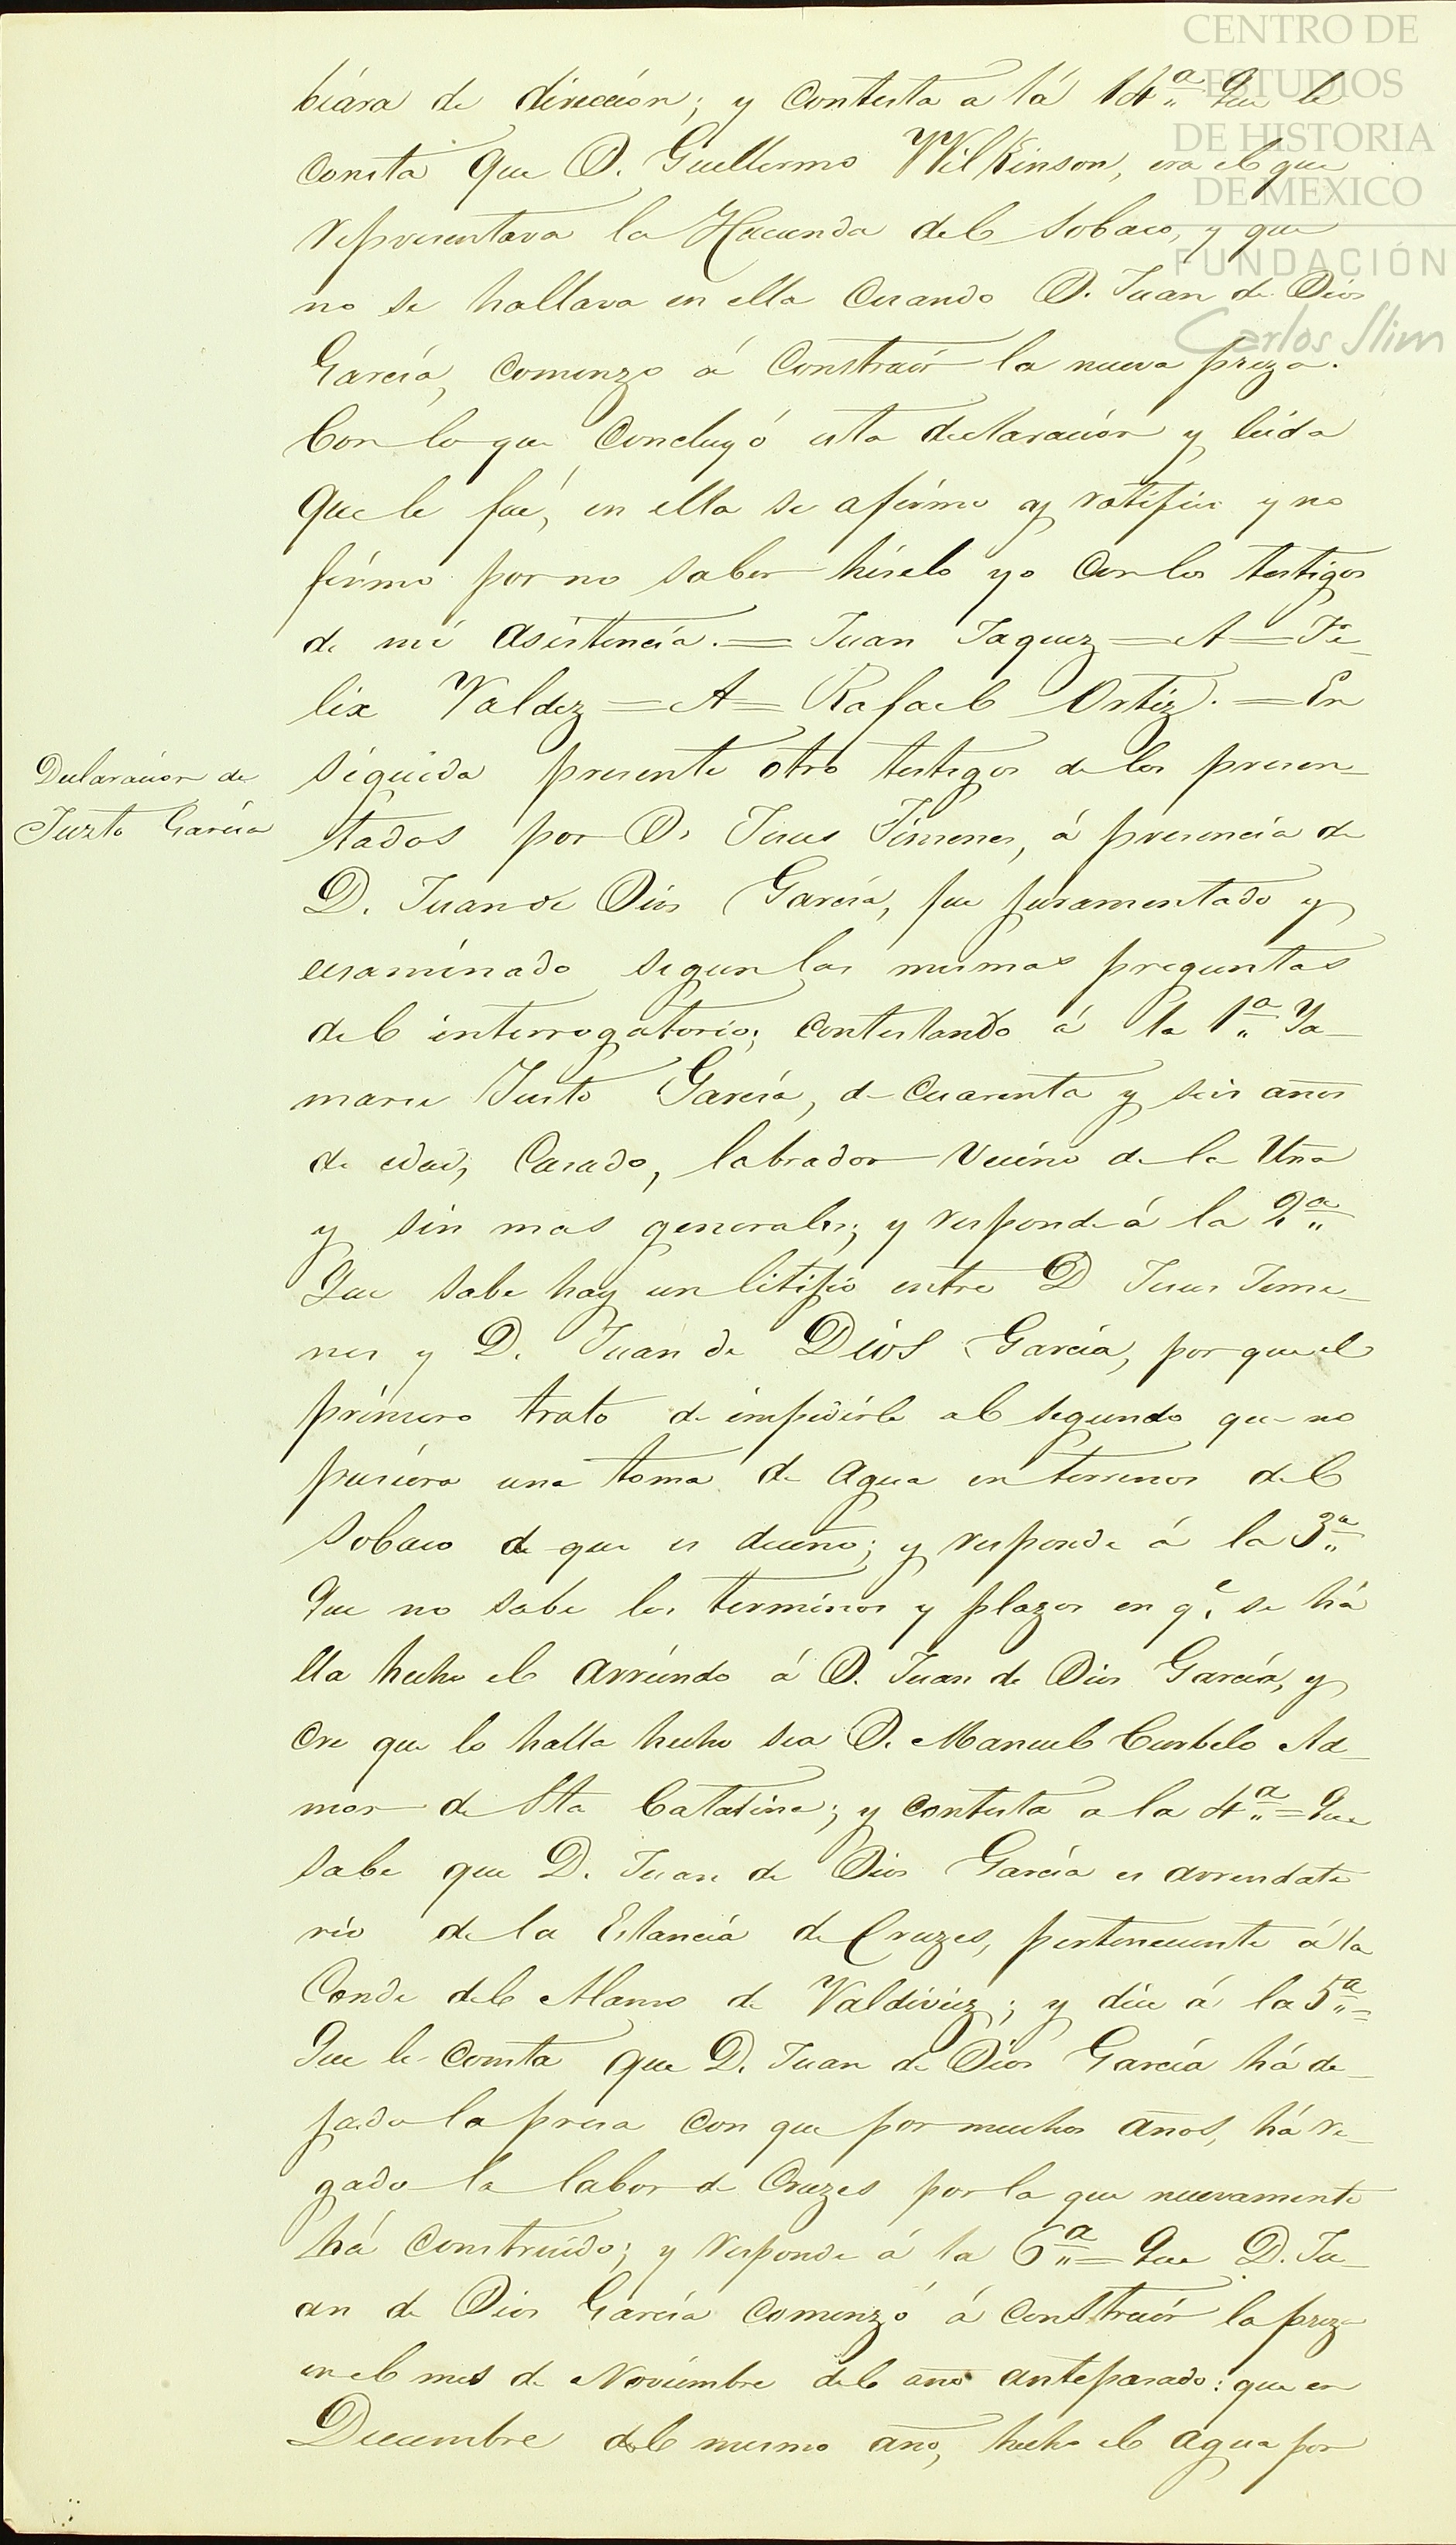 CENTRO DE
ESTUDIOS
DE HISTORIA
DE MEXICO
FUNDACIÓN
Carlos Slim
biára de dirección; y contesta a lá 14ª Que le
consta que D. Guillermo Wilkinson, era el que
representava la Hacienda del Sobaco, y que
no se hallava en ella cuando D. Juan de Dios
García, comenzo á construir la nueva preza.
Con lo que concluyó esta declaración y leida
que le fué, en ella se afirmo y ratifico y no
firmo por no saber hiselo yo con los testigos
de mi asistencia. = Juan Jaquez = A = Fe-
lix Valdez = A = Rafael Ortiz. = En
Declaracion de
Juzto Garcia
séguida presente otro testigos de los presen-
tados por D. Jesus Jimenes, á presencia de
D. Juan de Dios García, fue juramentado y
ecsaminado segun las mismas preguntas
del interrogatorio; contestando á la 1ª Ya-
marse Justo García, de cuarenta y seis años
de edad, Casado, labrador vecino de la Uña
y sin mas generales; y responde á la 2ª
Que sabe hay un litijio entre D Jesus Jime-
nes y D. Juan de Dios García, por que el
primero trato de impedirle al segundo que no
pusiera una toma de agua en terrenos del
Sobaco de que es dueño; y responde á la 3ª
Que no sabe los terminos y plazos en q.e se há
lla hecho el arriendo á D. Juan de Dios García, y
cre que lo halla hecho sea D. Manuel Curbelo Ad-
mor de Sta Catarina; y contesta a la 4ª = Que
sabe que D. Juan de Dios García es arrendata
rio de la Estancia de Cruzes, perteneciente á la
Conde del Alamo de Valdiviez; y dice á la 5ª =
Que le consta que D. Juan de Dios García há de-
jado la presa con que por muchos años, há re-
gado la labor de Cruzes por la que nuevamente
há construido; y responde á la 6ª = Que D. Ju-
an de Dios García comenzó á construir la preza
en el mes de Noviembre del año antepasado: que en
Diciembre del mismo año, hecho el agua por